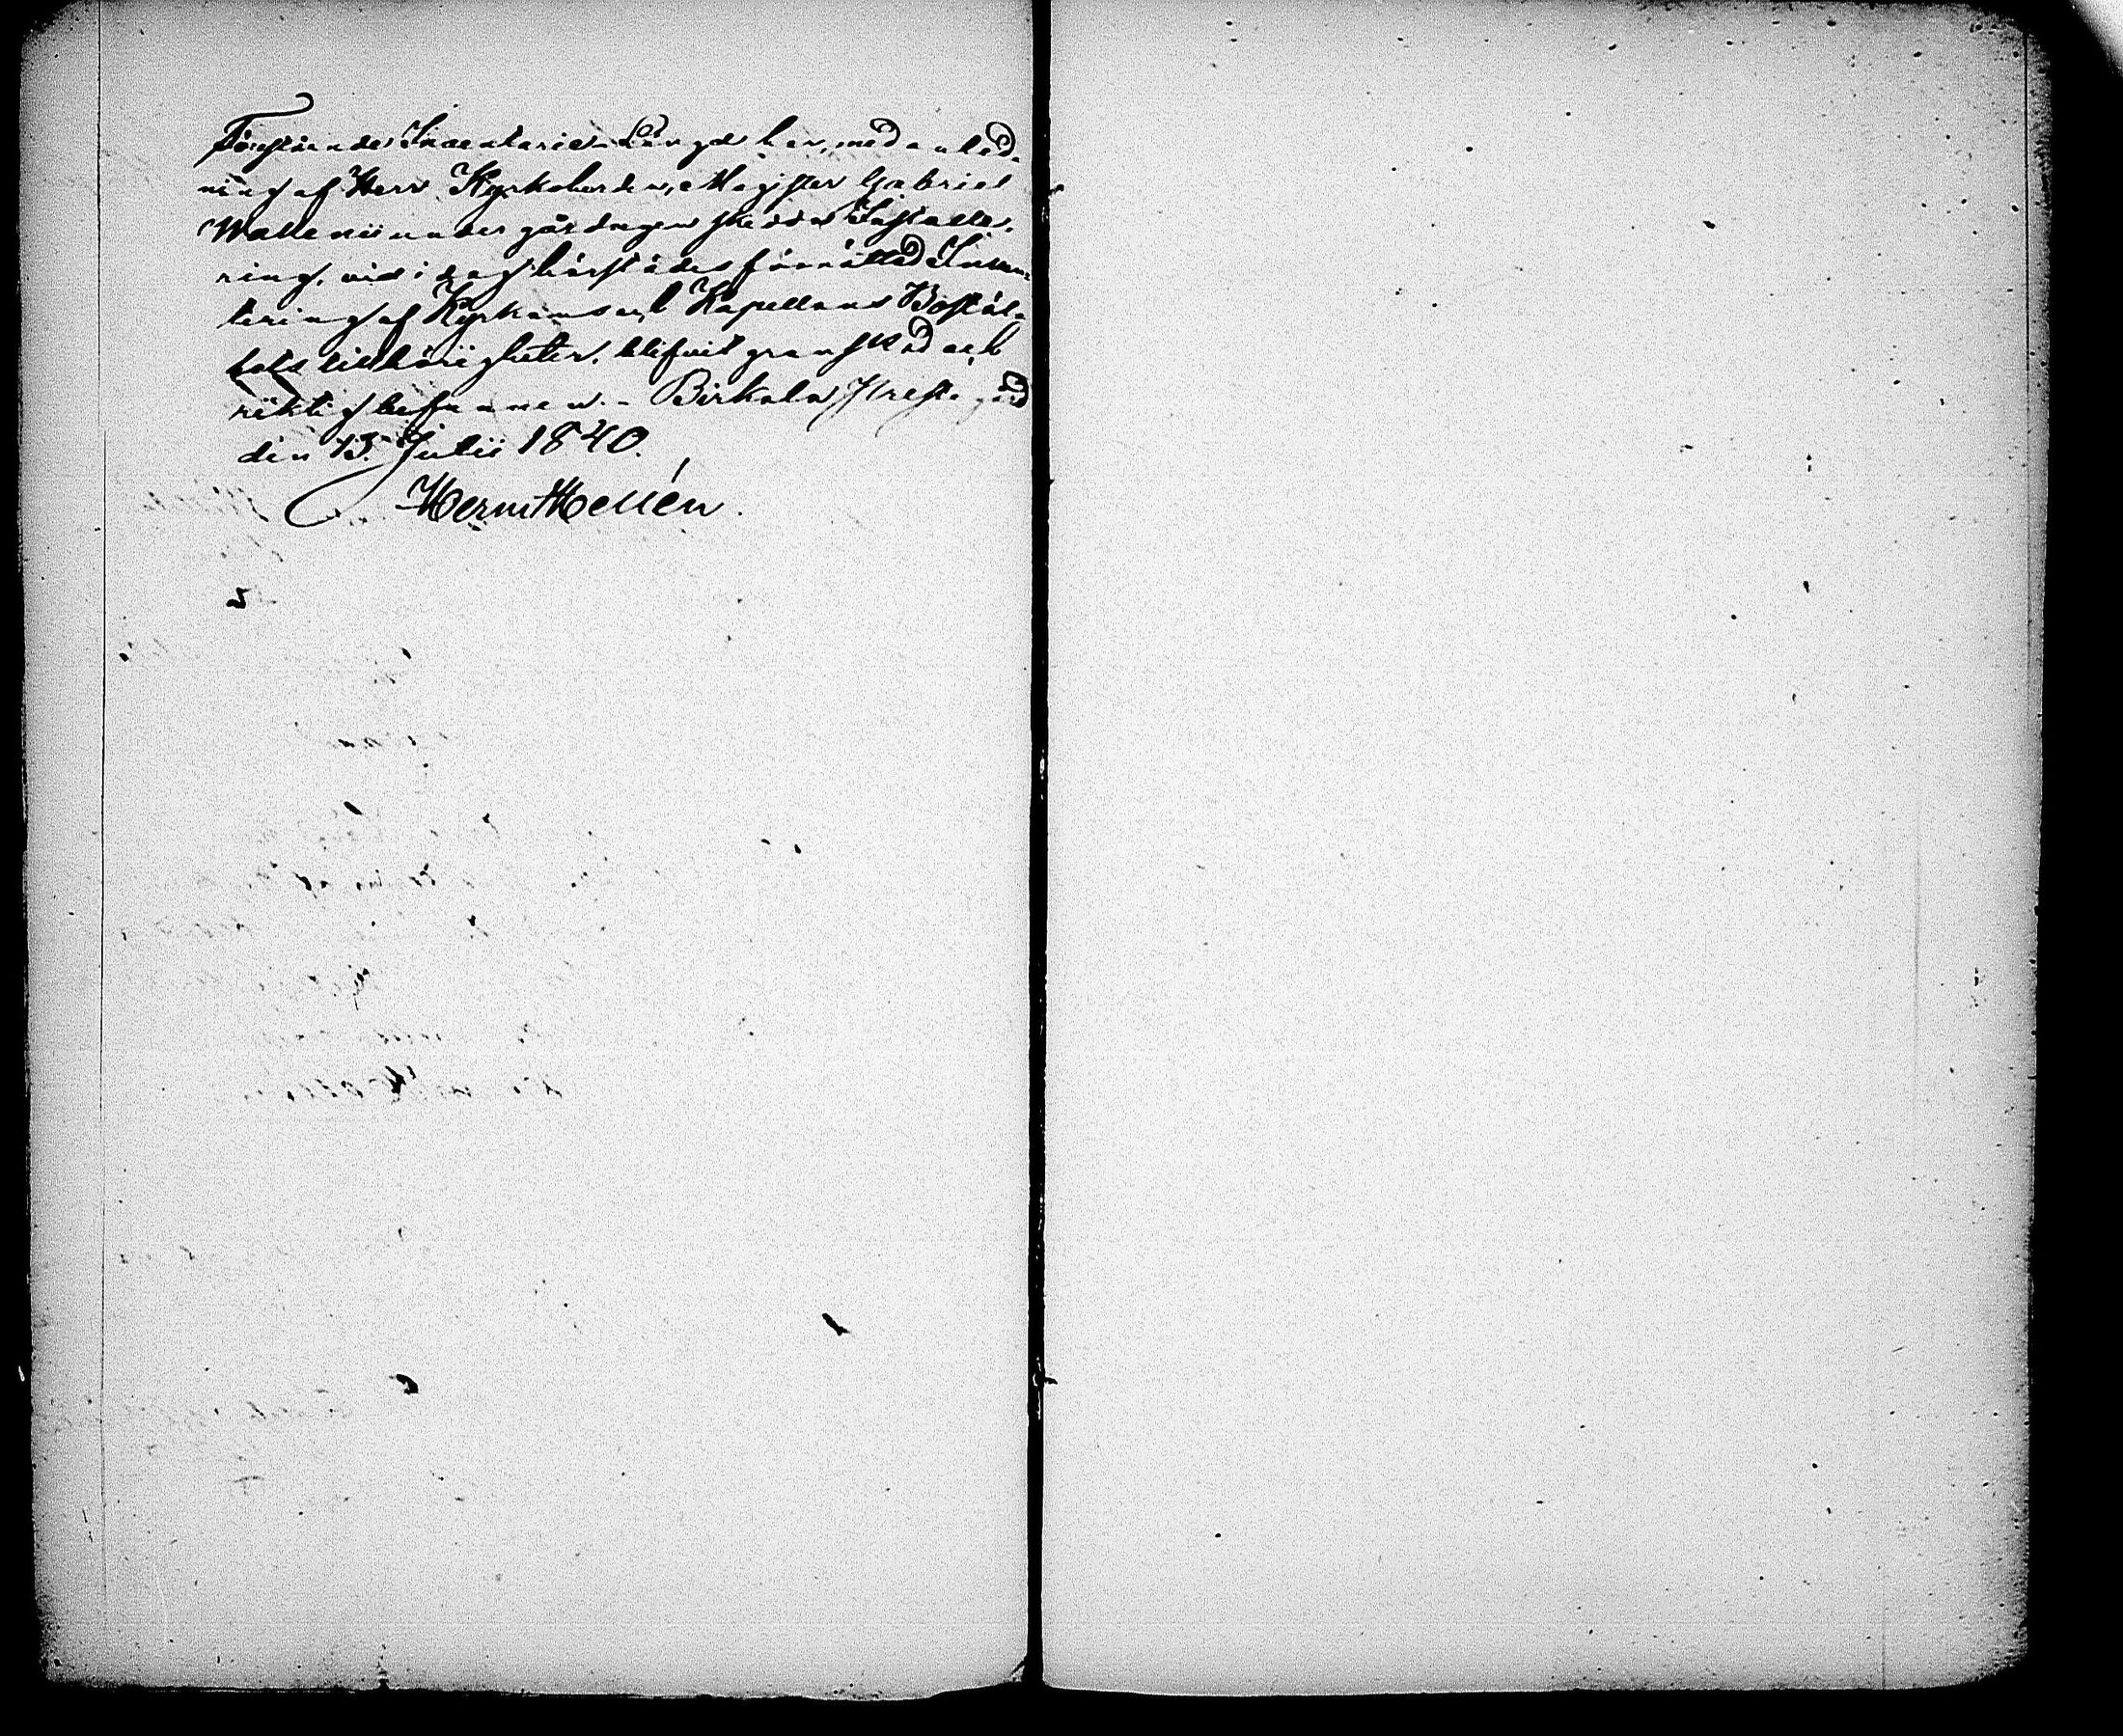 Förestående Inventarie-Längd har, med anled-
ning af Herr Kyrkoherden, Magister Gabriel
Wallenii under gårdagen skedda Installe-
ring, vid i dag härstädes förrättad Inven-
tering af Kyrkans och Kapellans Bostäl-
lets tillhörigheter, blifvit granskad och
riktig befunnen. - Birkala Prestegård
den 13 Julii 1840.
Herm Hellén.